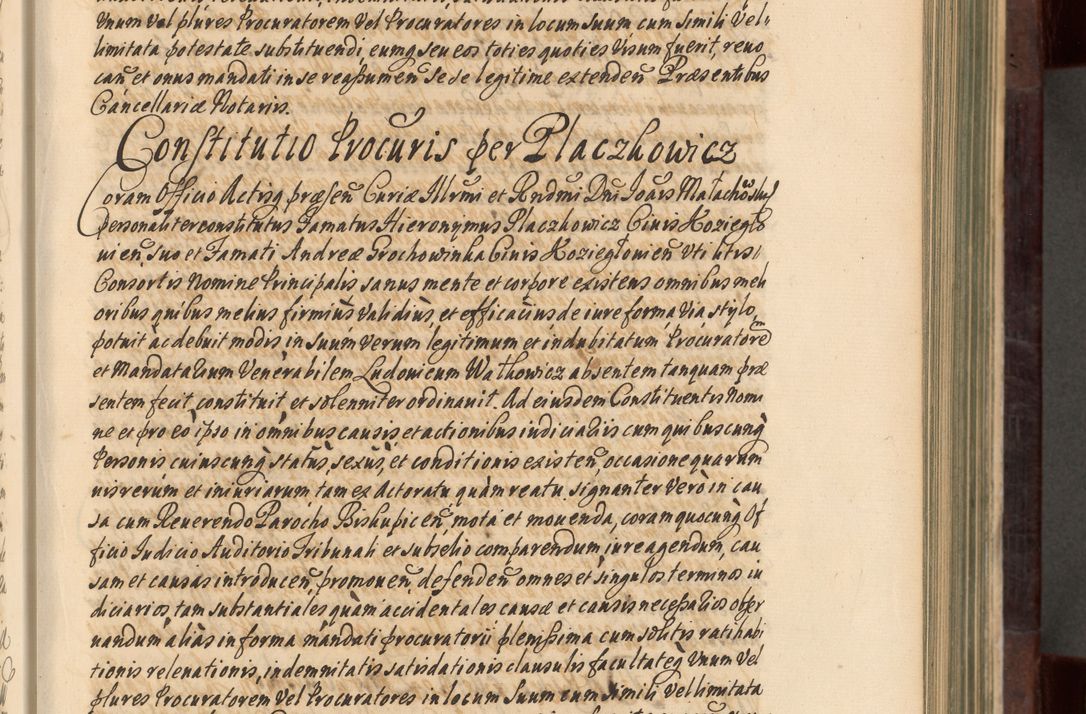 Unum vel plures Procuratorem vel Procuratores in locum suum cum simili vel
limitata potestate substituendi, eumq seu eos toties quoties visum fuerit, revo
can̄ et onus mandati in se reassumen̄ sese legitime extenden̄ Præsentibus
Cancellariæ Notariis.
Constitutio Procuris per Placzkowicz
Coram Officio Actisq præsen̄ Curiæ Illrmi et Rndmi Dn̄i Joan̄s Małachowski
personaliter constitutus Famatus Hieronymus Płaczkowicz Civis Koziegło
vien̄, suo et Famati Andreæ Grochowinka Civis Koziegłovien̄ uti
Consortis Nomine Principalis sanus mente et corpore existens omnibus meli
oribus quibus melius firmius validius, et efficacius de iure forma, via stylo,
potuit ac debuit modis in suum verum legitimum et indubitatum Procuratorem
et Mandatarium Venerabilem Ludovicum Wałkowicz absentem tanquam præ
sentem fecit, constituit, et solenniter ordinavit. Ad eiusdem Constituentis Nomi
ne et pro eo ipso in omnibus causis et actionibus iudicialiis cum quibuscunq
Personis cuiuscunq status, sexus, et conditionis existen̄, occasione quarum
vis rerum et iniuriarum tam ex Actoratu quam reatu, signanter vero in cau
sa cum Reverendo Parocho Biskupicen̄, mota et movenda, coram quocunq Of
ficio Iudicio Auditorio Tribunali et subselio comparendum, iure agendum, cau
sam et causas introducen̄, promoven̄, defenden̄ omnes et singulos terminos iu
diciarios, tam substantiales quam accidentales causæ et causis necessarios obser
vandum alias in forma mandati procuratorii plenissima cum solitis ratihabi
tionis relevationis, indemnitatis satisdationis clausulis facultateq Unum vel
plures Procuratorem vel Procuratores in locum suum cum simili vel limitata